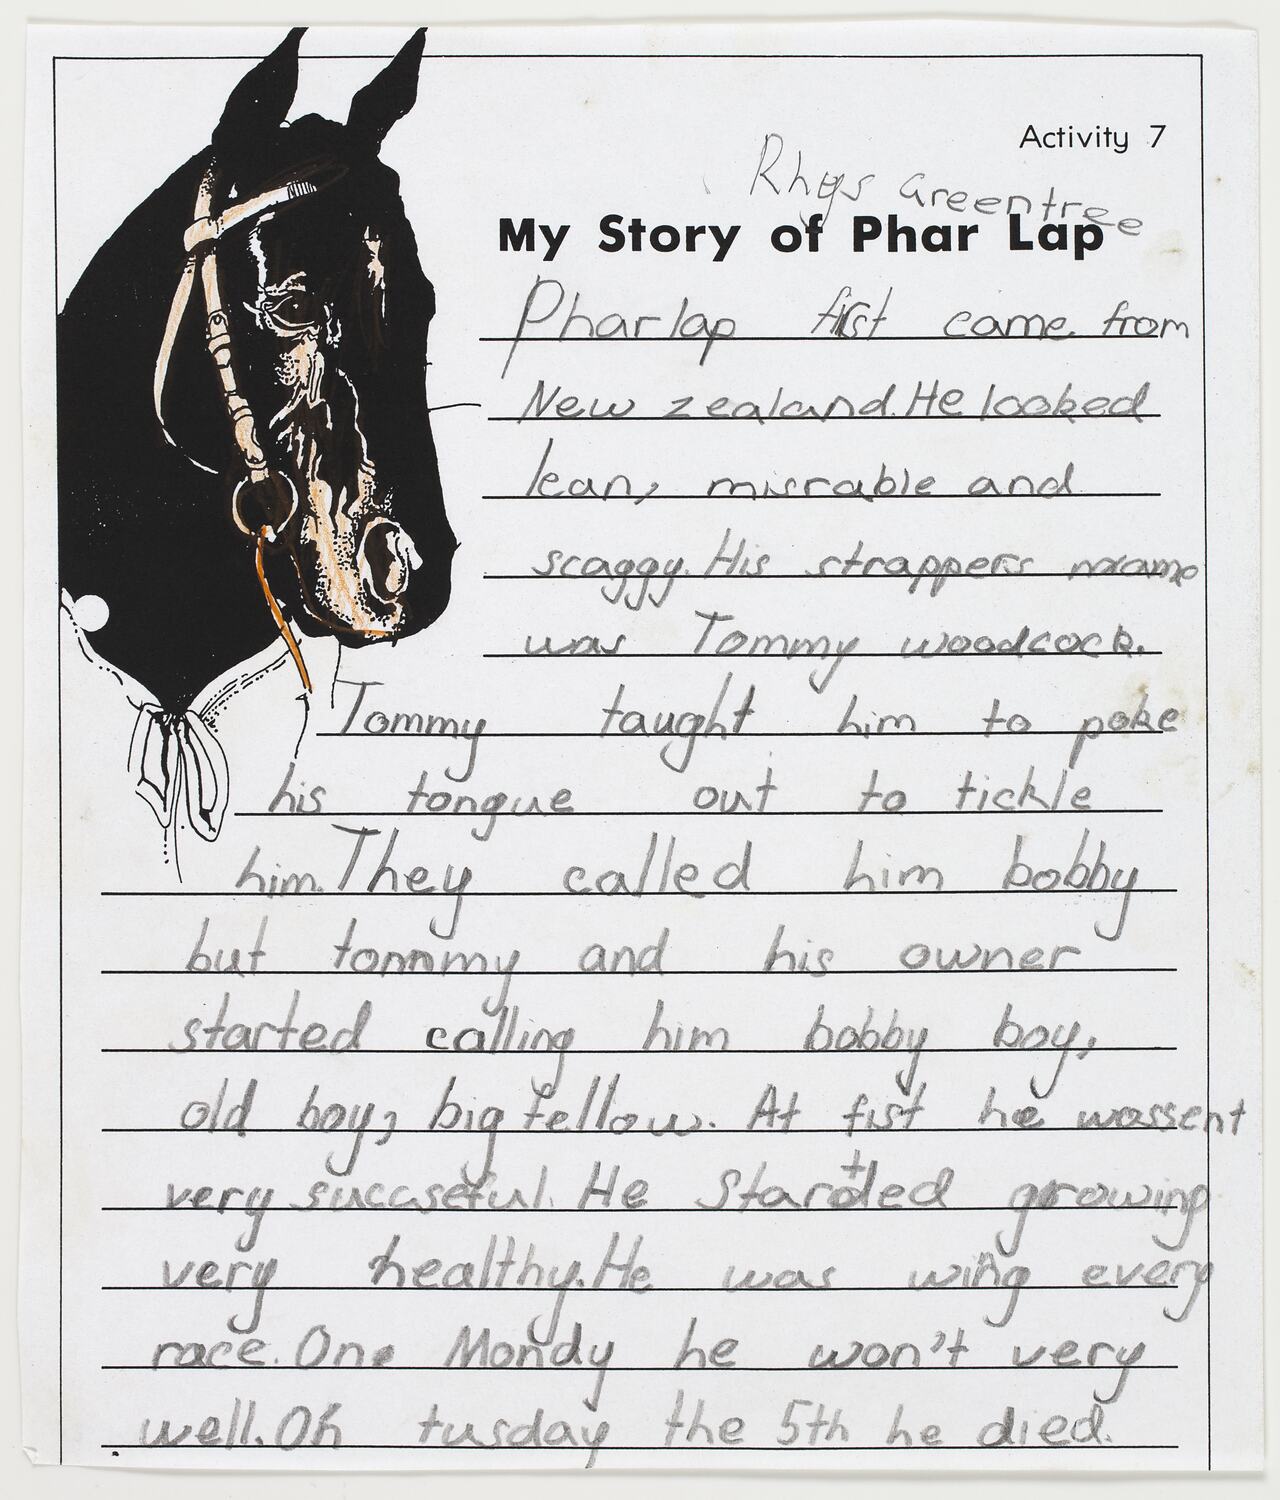 Activity 7
Rhys Greentree
My Story of Phar Lap
Pharlap fist came from
New zealand. He looked
lean, misrable and
scaggy. His strappers
was Tommy woodcock.
Tommy taught him to poke
his tongue out to tickle
him. They called him bobby
but tommmy and his owner
started calling him bobby boy,
old boy, big fellow. At fist he wassent
very succseful. He Started growing
very healthy. He was wing every
race. One Mondy he won't very
well. On tusday the 5th he died.